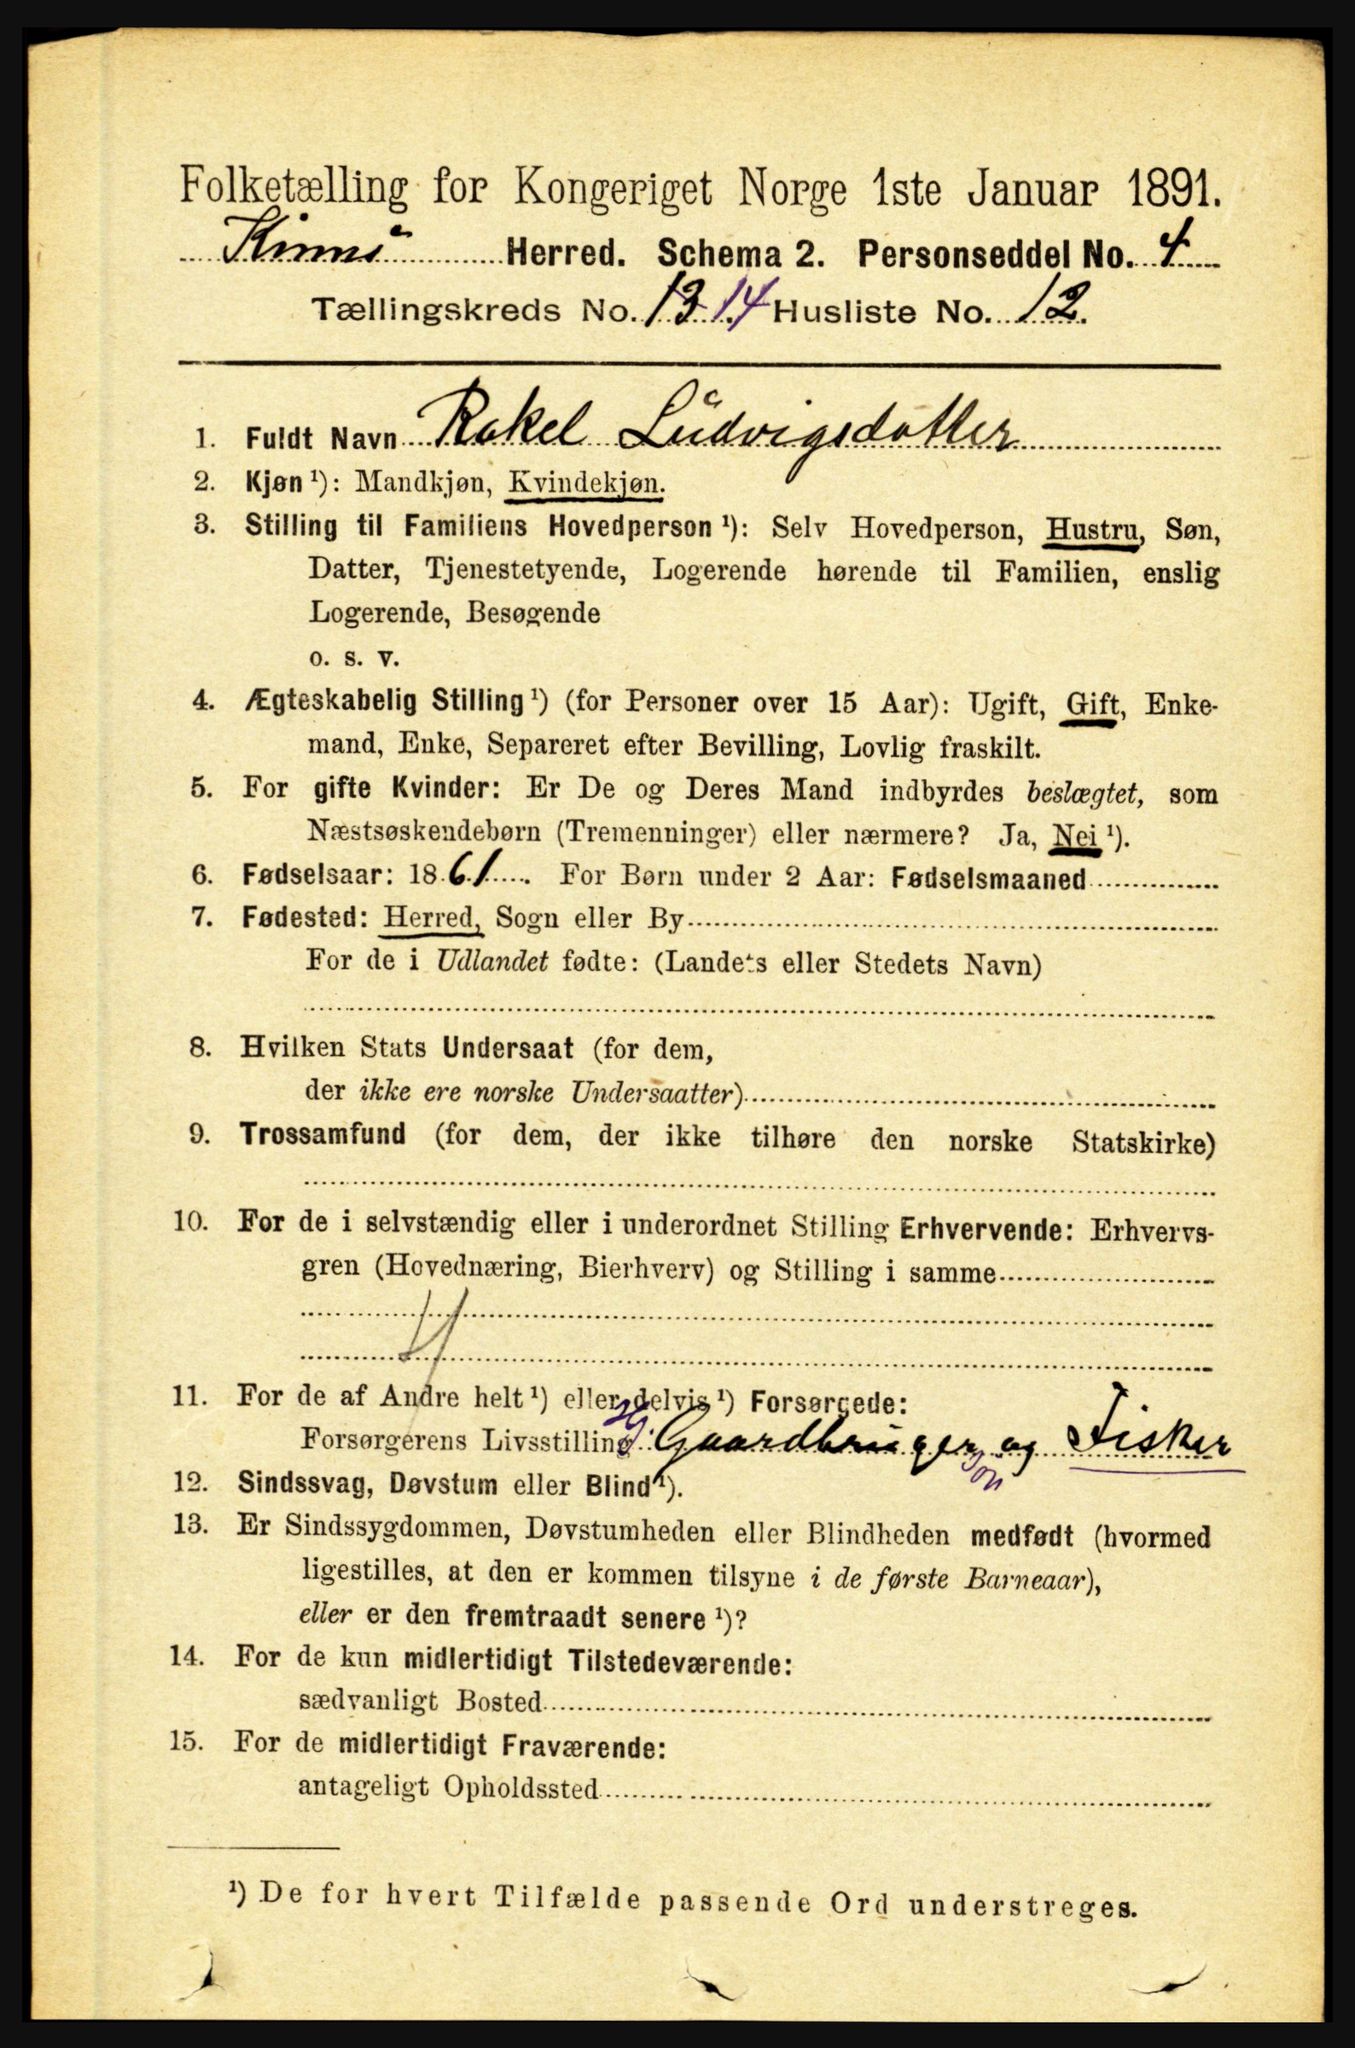 Folketælling for Kongeriget Norge 1ste Januar 1891.
Kinn Herred. Schema 2. Personseddel No. 4
Tællingskreds No. 13 14 Husliste No. 12.
1. Fuldt Navn Rakel Ludvigsdatter
2. Kjøn ¹): Mandkjøn, Kvindekjøn.
3. Stilling til Familiens Hovedperson ¹): Selv Hovedperson, Hustru, Søn,
Datter, Tjenestetyende, Logerende hørende til Familien, enslig
Logerende, Besøgende
o. s. v.
4. Ægteskabelig Stilling ¹) (for Personer over 15 Aar): Ugift, Gift, Enke-
mand, Enke, Separeret efter Bevilling, Lovlig fraskilt.
5. For gifte Kvinder: Er De og Deres Mand indbyrdes beslægtet, som
Næstsøskendebørn (Tremenninger) eller nærmere? Ja, Nei ¹).
6. Fødselsaar: 1861. For Børn under 2 Aar: Fødselsmaaned
7. Fødested: Herred, Sogn eller By
For de i Udlandet fødte: (Landets eller Stedets Navn)
8. Hvilken Stats Undersaat (for dem,
der ikke ere norske Undersaatter)
9. Trossamfund (for dem, der ikke tilhøre den norske Statskirke)
10. For de i selvstændig eller i underordnet Stilling Erhvervende: Erhvervs-
gren (Hovednæring, Bierhverv) og Stilling i samme
11. For de af Andre helt ¹) eller delvis ¹) Forsørgede:
Forsørgerens Livsstilling: Gaardbruger og Fisker
12. Sindssvag, Døvstum eller Blind ¹).
13. Er Sindssygdommen, Døvstumheden eller Blindheden medfødt (hvormed
ligestilles, at den er kommen tilsyne i de første Barneaar),
eller er den fremtraadt senere ¹)?
14. For de kun midlertidigt Tilstedeværende:
sædvanligt Bosted
15. For de midlertidigt Fraværende:
antageligt Opholdssted
¹) De for hvert Tilfælde passende Ord understreges.